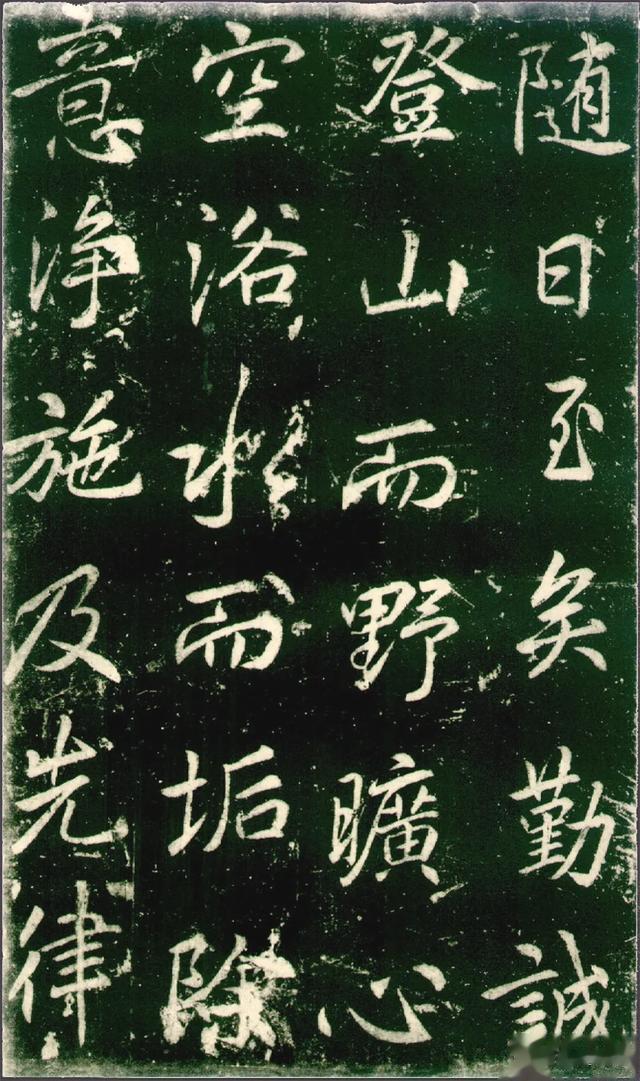 随日至矣勤誠
登山而野曠心
空浴水而垢除
意浄施及先律